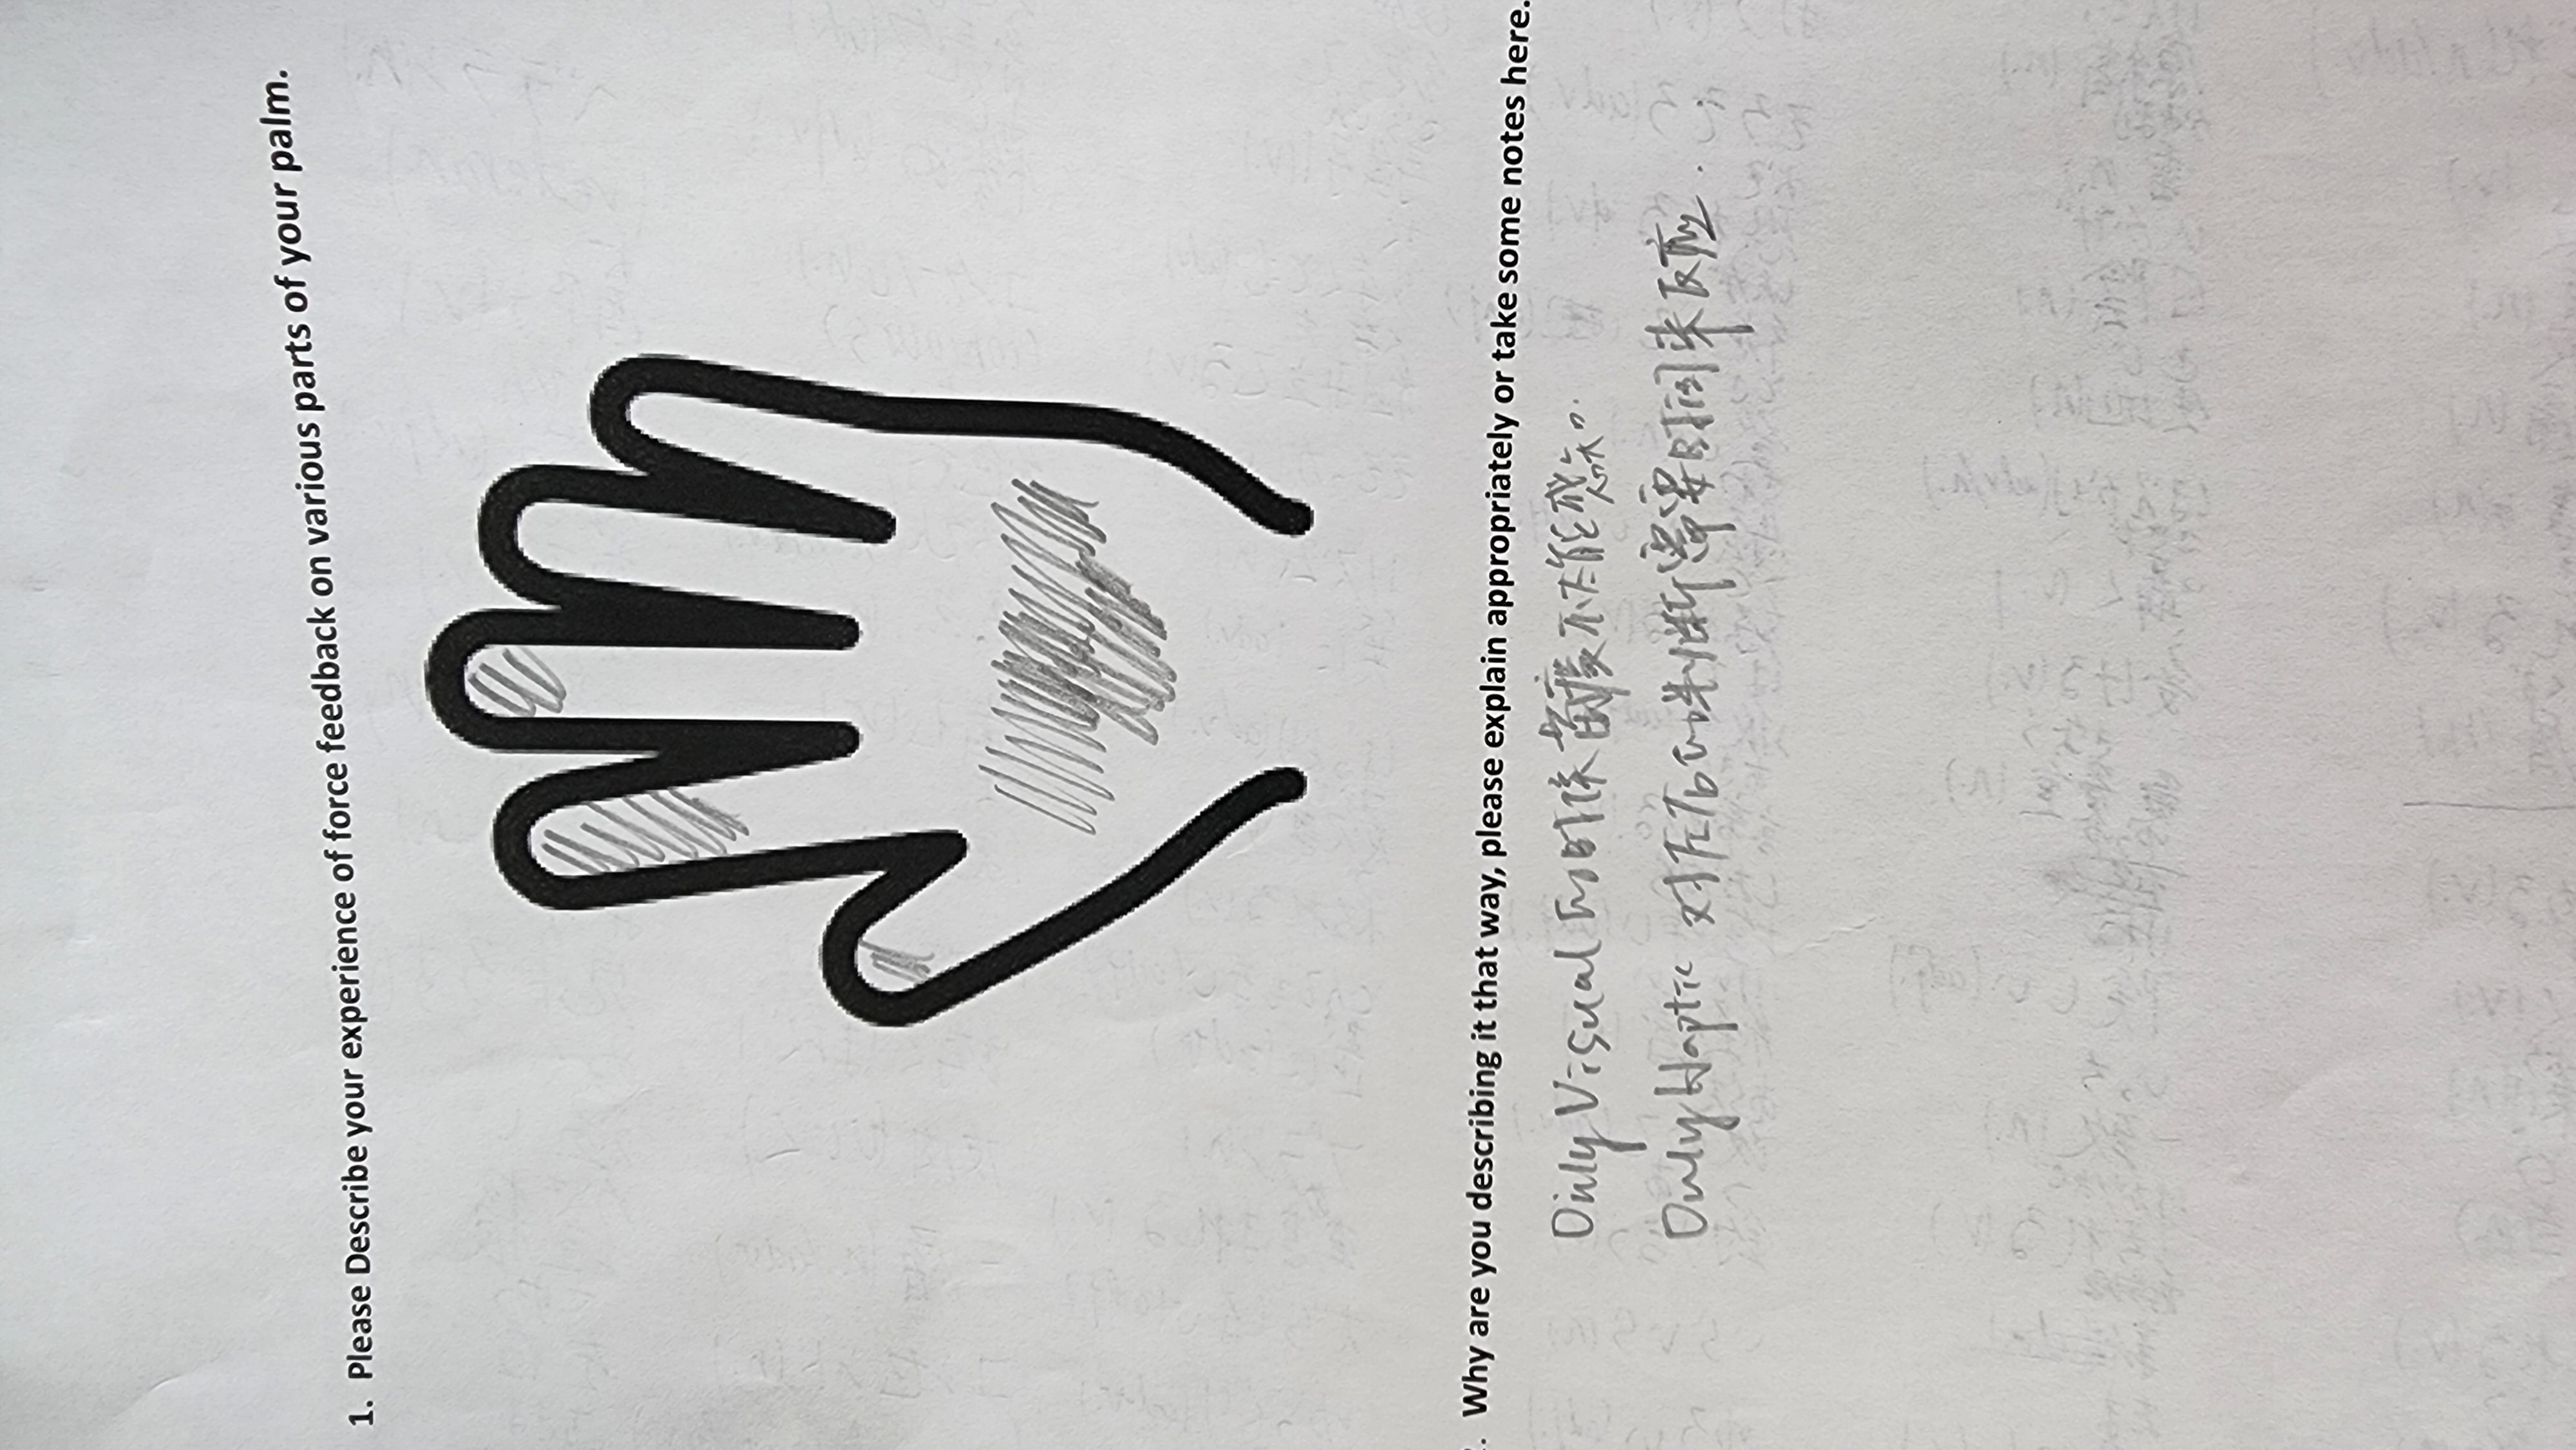 1. Please Describe your experience of force feedback on various parts of your palm.
. Why are you describing it that way, please explain appropriately or take some notes here.
Only Visual 的时候 不太能感知.
Only Haptic 对左右的判断需要时间来反应.